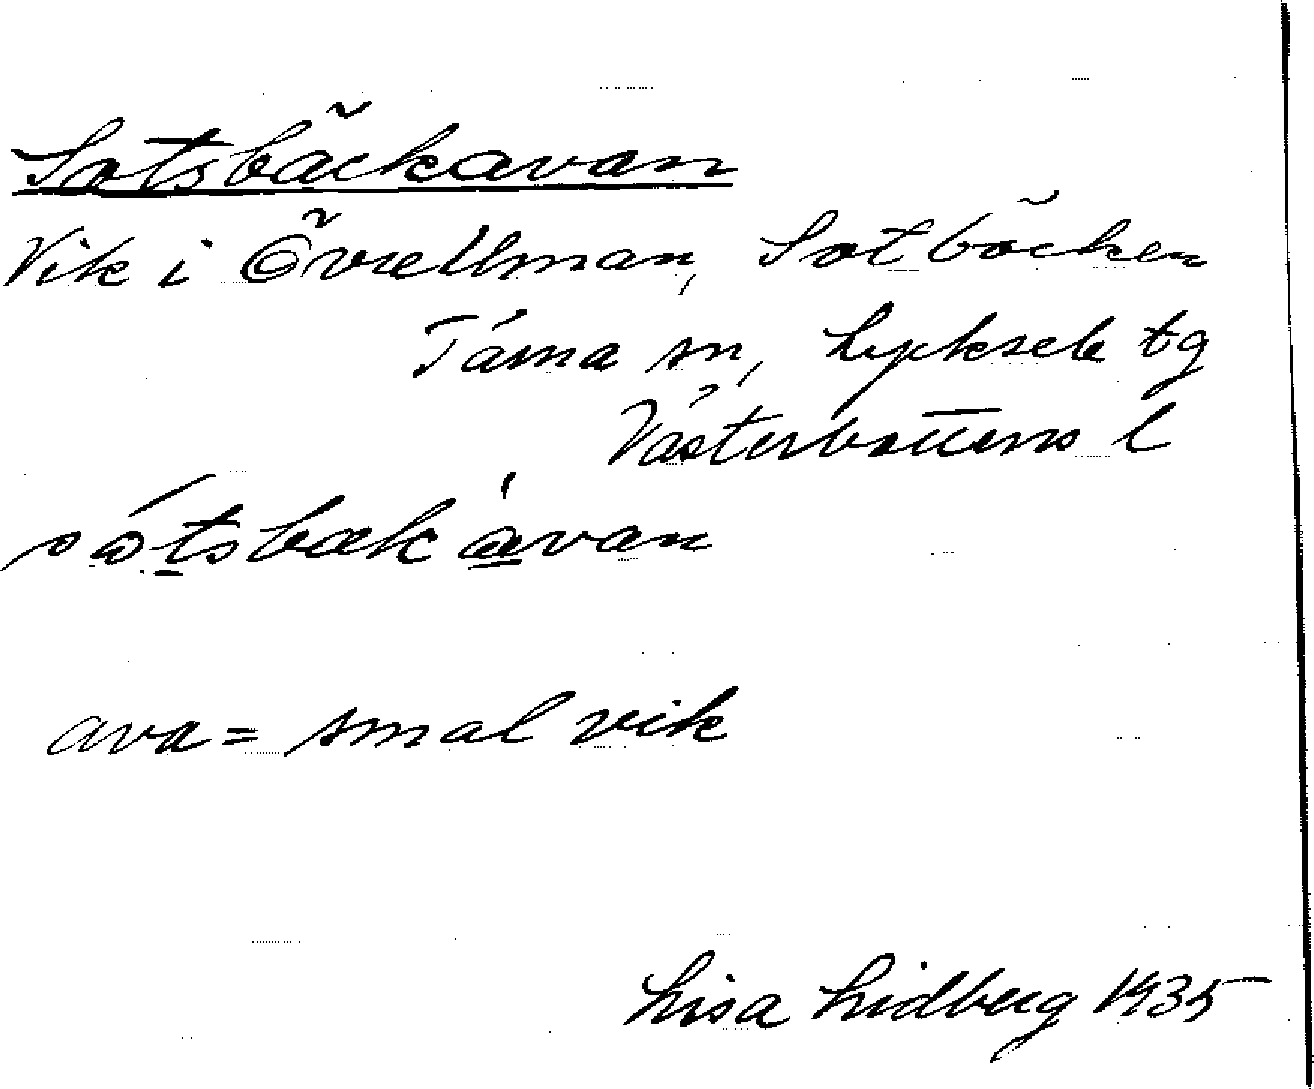 Sotsbäckavan
Vik i Övre Uman, Sotbäcken
Tärna sn, Lycksele tg
Västerbottens l
sótsbækàvan
ava = smal vik
Lisa Lidberg 1935